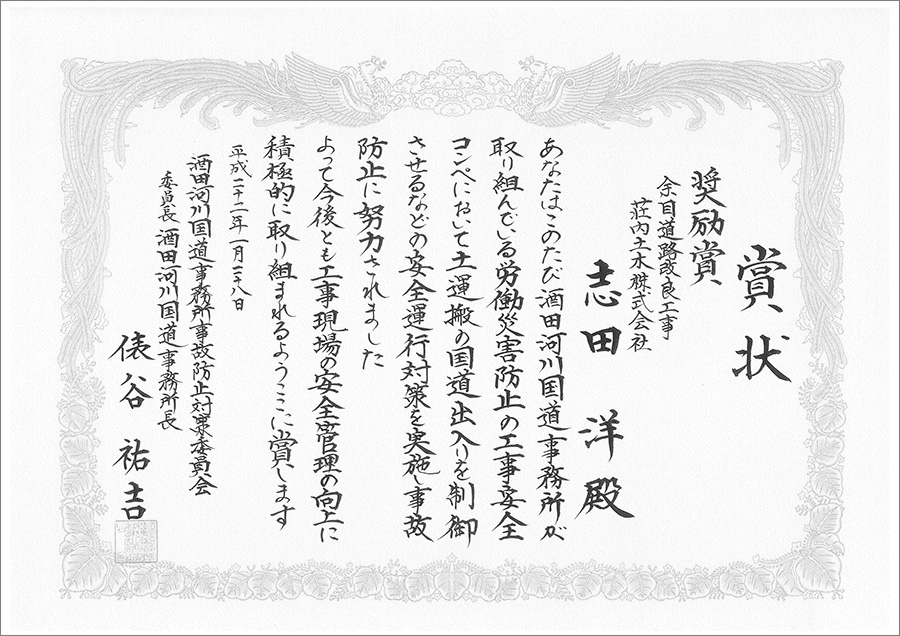 賞状
奨励賞
余目道路改良工事
荘内土木株式会社
志田 洋殿
あなたはこのたび酒田河川国道事務所が
取り組んでいる労働災害防止の工事安全
コンペにおいて土運搬の国道出入りを制御
させるなどの安全運行対策を実施し事故
防止に努力されました
よって今後とも工事現場の安全管理の向上に
積極的に取り組まれるようここに賞します
平成二十二年一月二十八日
酒田河川国道事務所事故防止対策委員会
委員長 酒田河川国道事務所長
俵谷 祐吉